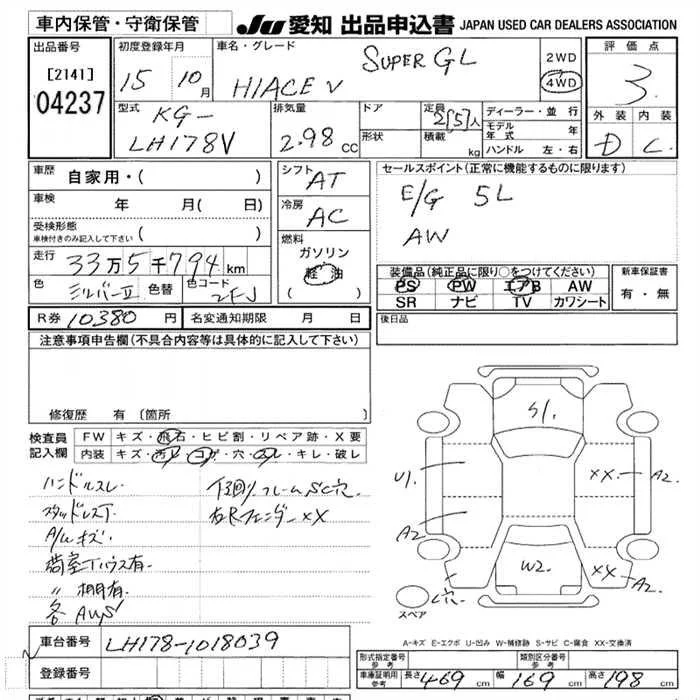 車内保管・守衛保管
JU 愛知 出品申込書 JAPAN USED CAR DEALERS ASSOCIATION
出品番号
[2141]
04237
初度登録年月
15 10月
車名・グレード
HIACE V SUPER GL
2WD
4WD
評価点
3
外装 内装
D C
型式
KG-
LH178V
排気量
2.98 cc
ドア
形状
定員
2[5]人
積載
kg
ディーラー・並行
モデル年式 年
ハンドル 左・右
車歴 自家用・( )
車検 年 月(日)
受検形態
車検付きのみ記入して下さい ( )
走行 33万5千794km
色 シルバーII 色替
色コード 2FJ
シフト AT
冷房 AC
燃料
ガソリン
軽油
( )
セールスポイント(正常に機能するものに限ります)
E/G 5L
AW
装備品(純正品に限り○をつけてください)
PS PW エアB AW
SR ナビ TV カワシート
新車保証書
有・無
R券 10380円 名変通知期限 月 日
後日品
注意事項申告欄(不具合内容等は具体的に記入して下さい)
修復歴 有〔箇所 〕
検査員記入欄
FW キズ・飛石・ヒビ割・リペア跡・X要
内装 キズ・汚レ・コゲ・穴・スレ・キレ・破レ
ハンドルスレ
スタッドレスT
A/Wキズ
荷室Tハウス有
〃 棚有
下回リフレームSC穴
右Rフェンダー××
S/1.
U1.
A2
XX. A2.
W2.
XX. A2.
スペア
A-キズ E-エクボ U-凹み W-補修跡 S-サビ C-腐食 XX-交換済
車台番号 LH178-1018039
登録番号
形式指定番号
参考
類別区分番号
参考
車庫証明用
参考
長さ 469cm 幅 169cm 高さ 198cm